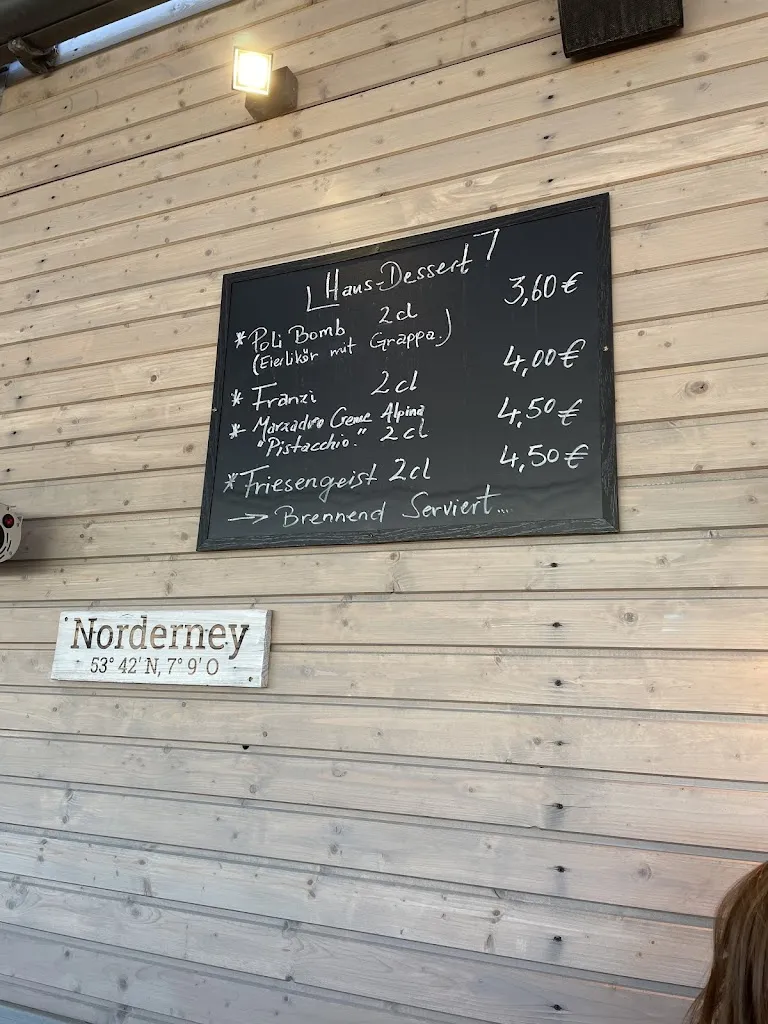 Haus-Dessert
* Poli Bomb 2cl 3,60€
(Eierlikör mit Grappa.)
* Franzi 2cl 4,00€
* Marzadro Creme Alpina
"Pistacchio." 2cl 4,50€
* Friesengeist 2cl 4,50€
→ Brennend Serviert...
Norderney
53° 42' N, 7° 9' O